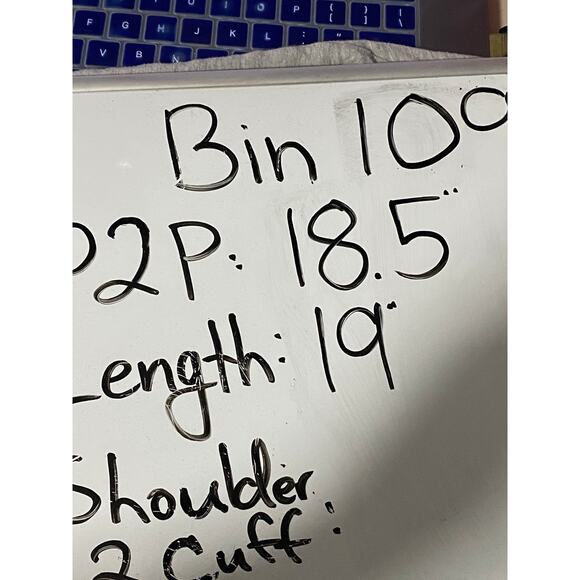 O P { [ } ] | \
F G H J K L : ; " '
V B N M
Bin 100
P2P: 18.5"
Length: 19"
Shoulder
2 Cuff: